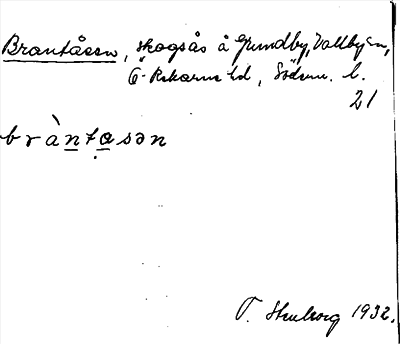 Brantåsen, skogsås å Grundby, Vallby sn,
Ö. Rekarne hd, Söderm. l.
21
bràntasən
T. Stenborg 1932.